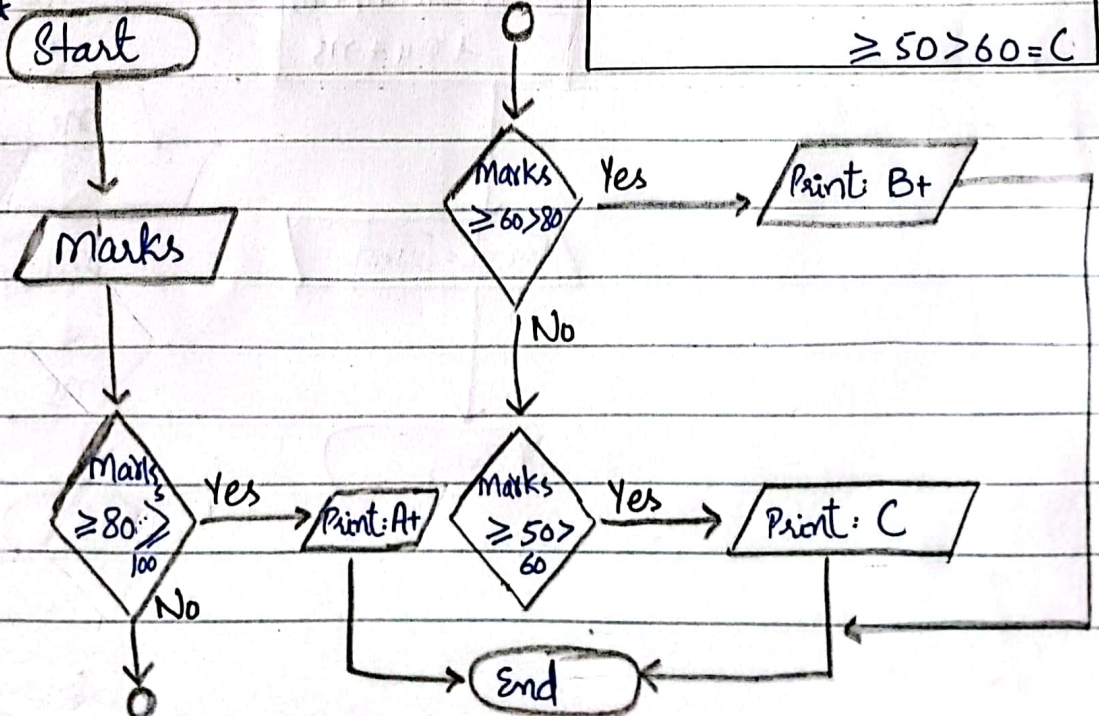 Start
Marks
Marks
≥80 ≥
100
Yes
Print: A+
No
≥ 50 > 60 = C
Marks
≥ 60 > 80
Yes
Print: B+
No
Marks
≥ 50 >
60
Yes
Print: C
End